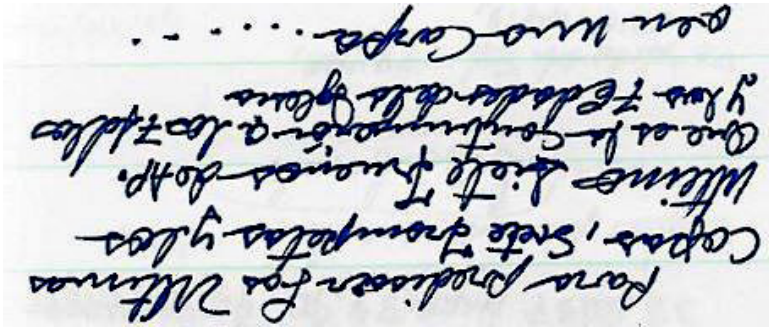 Para predicar las Ultimas
Copas, Siete Trompetas y los
Ultimos Siete Truenos de AP.
Que es la Continuación a los 7 Sellos
y las 7 Edades de la Iglesia
o en una Carpa . . . . . .